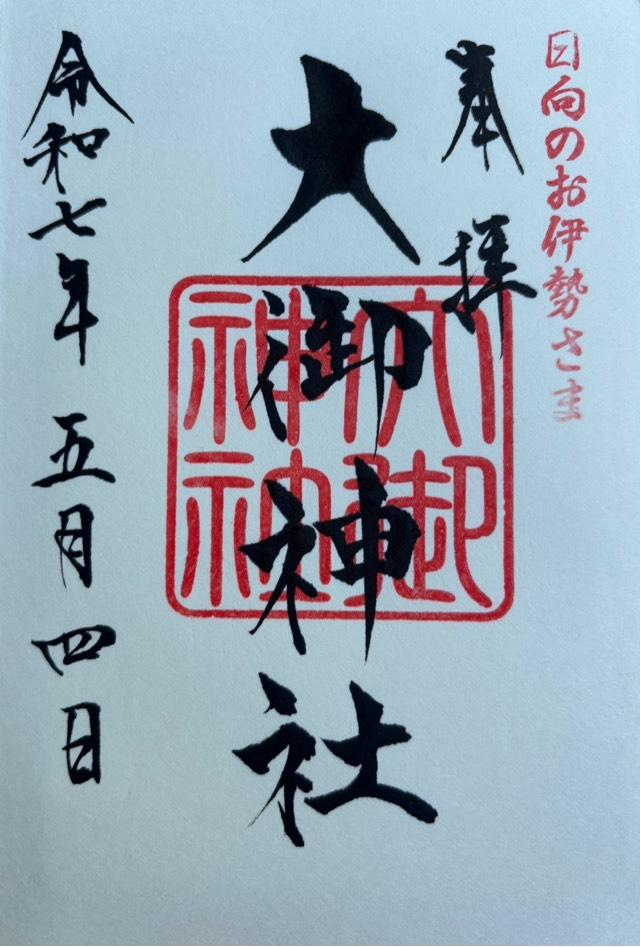 日向のお伊勢さま
奉拝
大御神社
大御神社
令和七年五月四日